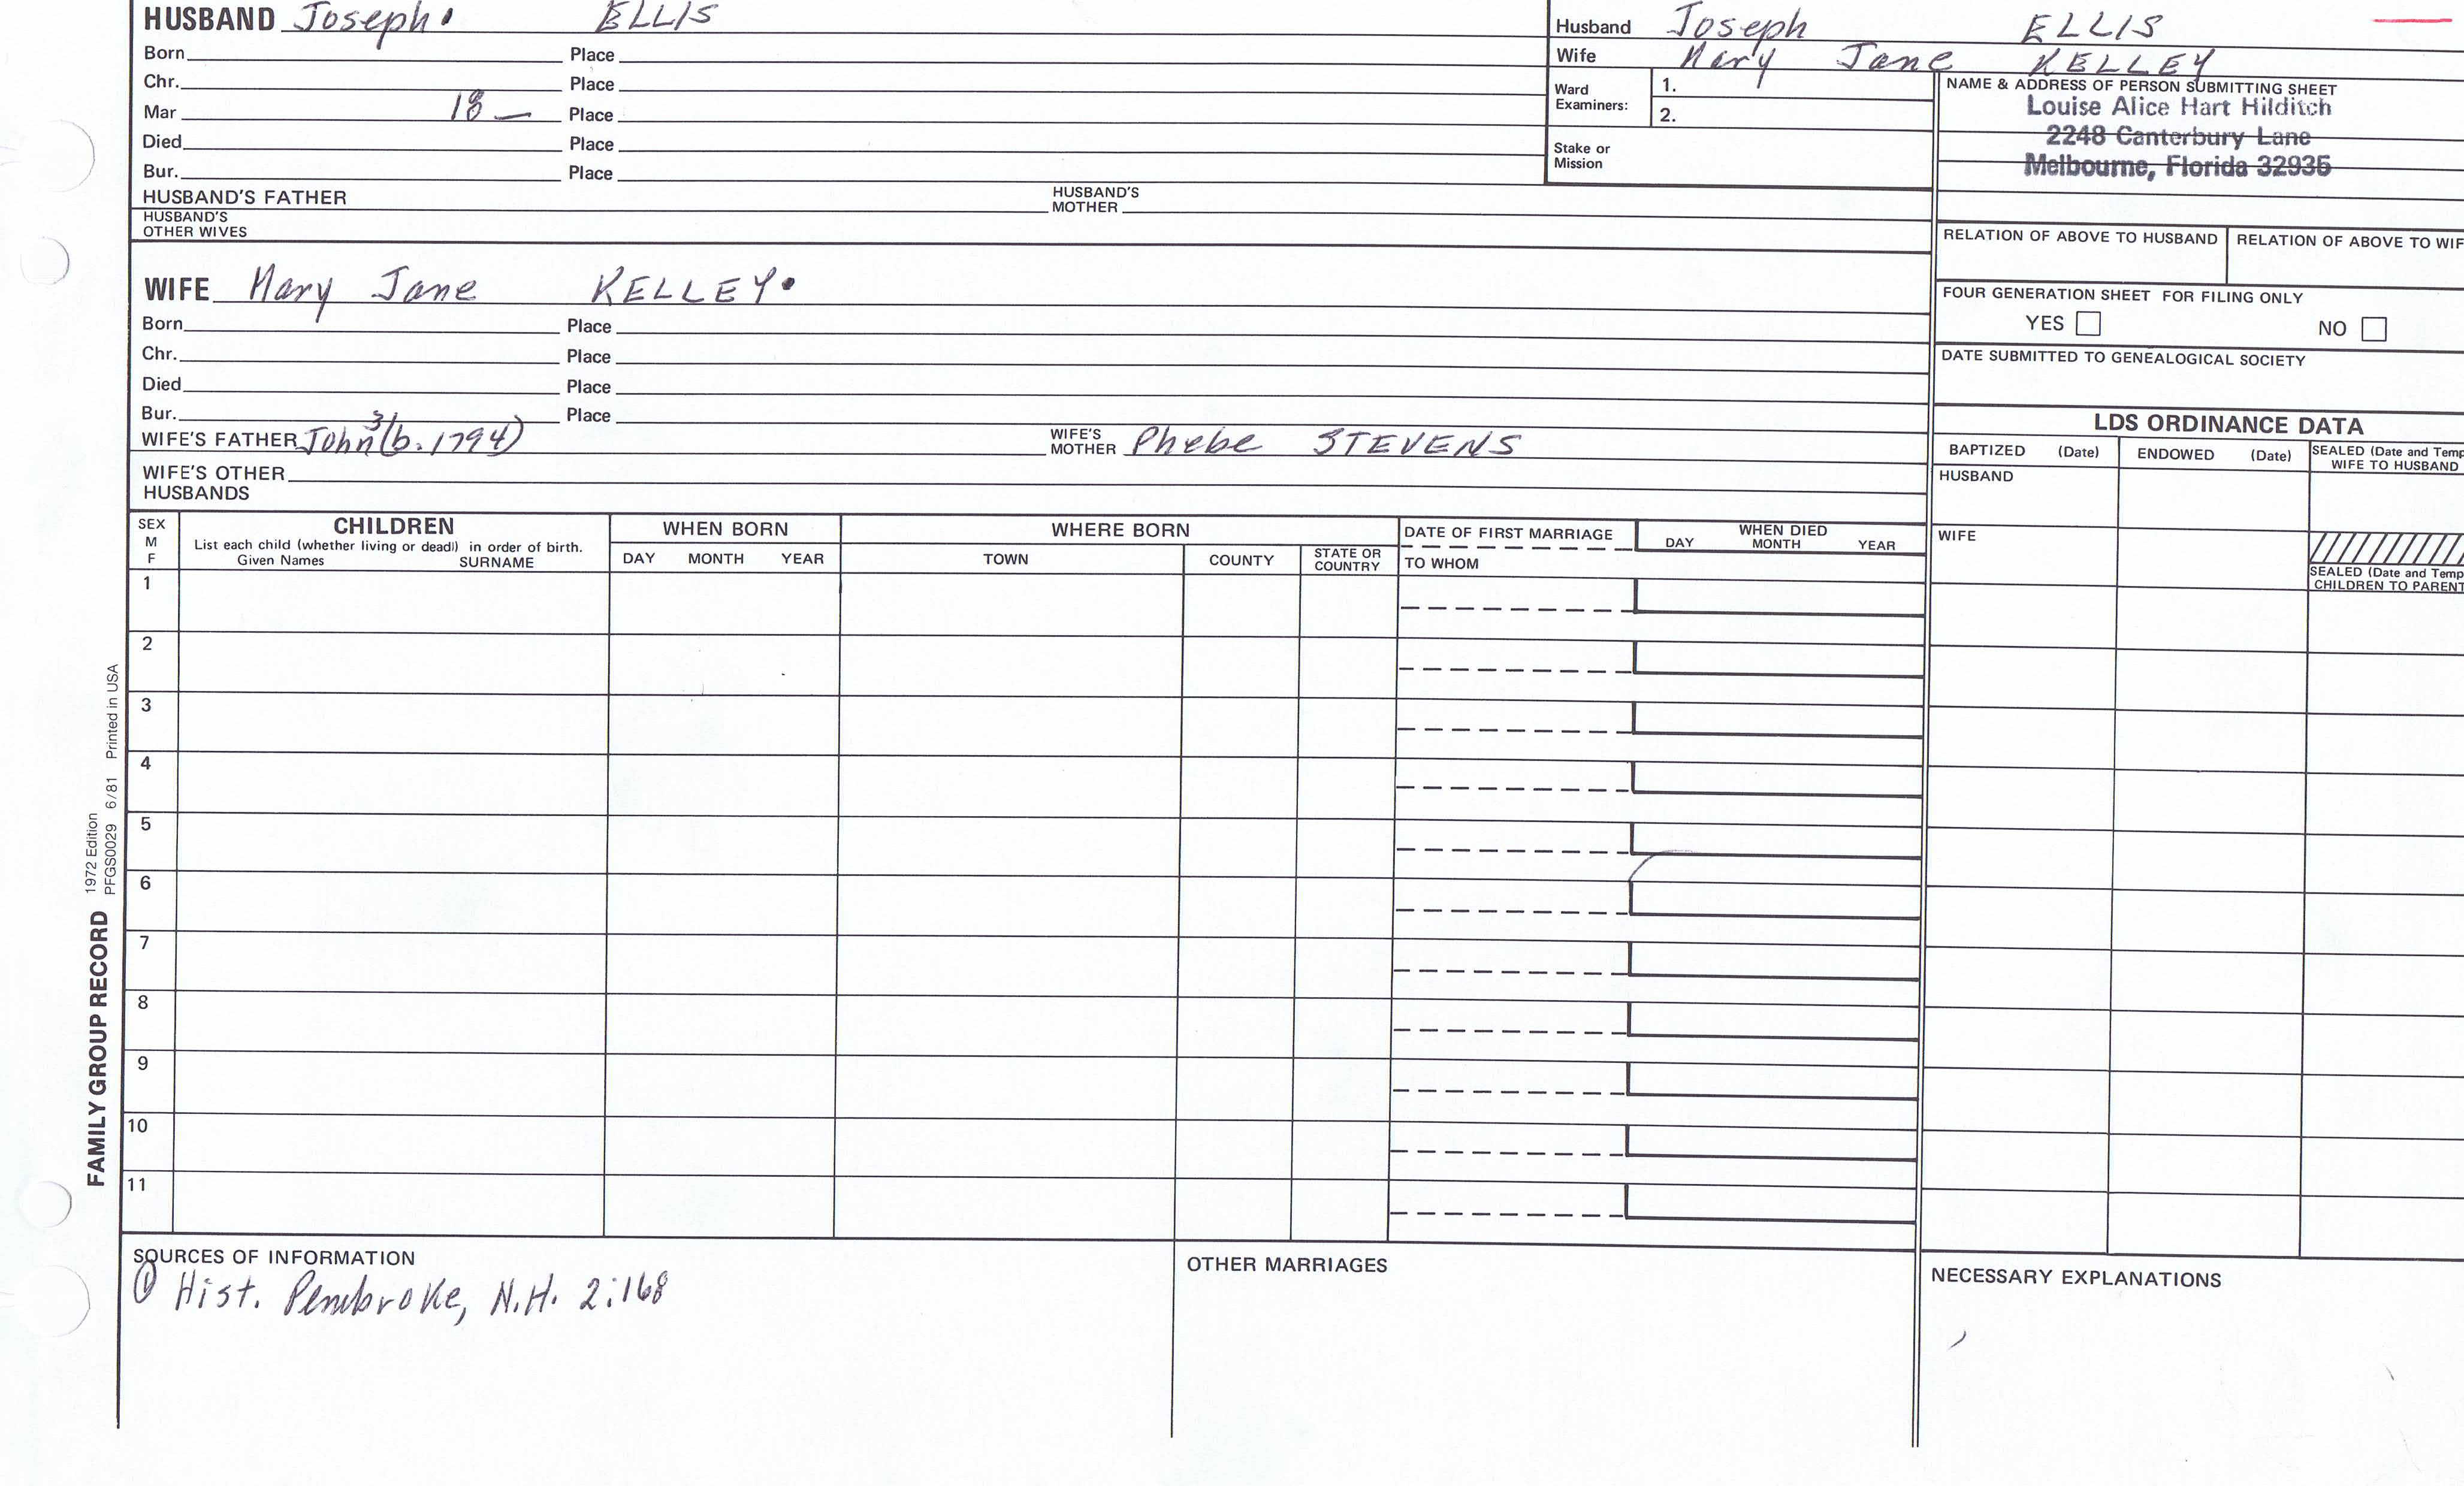 HUSBAND Joseph. ELLIS
Born Place
Chr. Place
Mar 18— Place
Died Place
Bur. Place
HUSBAND'S FATHER HUSBAND'S MOTHER
HUSBAND'S OTHER WIVES
Husband Joseph ELLIS
Wife Mary Jane KELLEY
Ward Examiners: 1.
2.
Stake or Mission
NAME & ADDRESS OF PERSON SUBMITTING SHEET
Louise Alice Hart Hilditch
2248 Canterbury Lane
Melbourne, Florida 32935
RELATION OF ABOVE TO HUSBAND RELATION OF ABOVE TO WIF
FOUR GENERATION SHEET FOR FILING ONLY
YES NO
DATE SUBMITTED TO GENEALOGICAL SOCIETY
WIFE Mary Jane KELLEY.
Born Place
Chr. Place
Died Place
Bur. Place
WIFE'S FATHER John 3 (b. 1794) WIFE'S MOTHER Phebe STEVENS
WIFE'S OTHER HUSBANDS
LDS ORDINANCE DATA
BAPTIZED (Date) ENDOWED (Date) SEALED (Date and Temp
WIFE TO HUSBAND
HUSBAND
WIFE
SEALED (Date and Temp
CHILDREN TO PARENT
SEX M F
CHILDREN
List each child (whether living or dead) in order of birth.
Given Names SURNAME
WHEN BORN
DAY MONTH YEAR
WHERE BORN
TOWN COUNTY STATE OR COUNTRY
DATE OF FIRST MARRIAGE
TO WHOM
WHEN DIED
DAY MONTH YEAR
1
2
3
4
5
6
7
8
9
10
11
FAMILY GROUP RECORD 1972 Edition
PFGS0029 6/81 Printed in USA
SOURCES OF INFORMATION
① Hist. Pembroke, N.H. 2:168
OTHER MARRIAGES
NECESSARY EXPLANATIONS